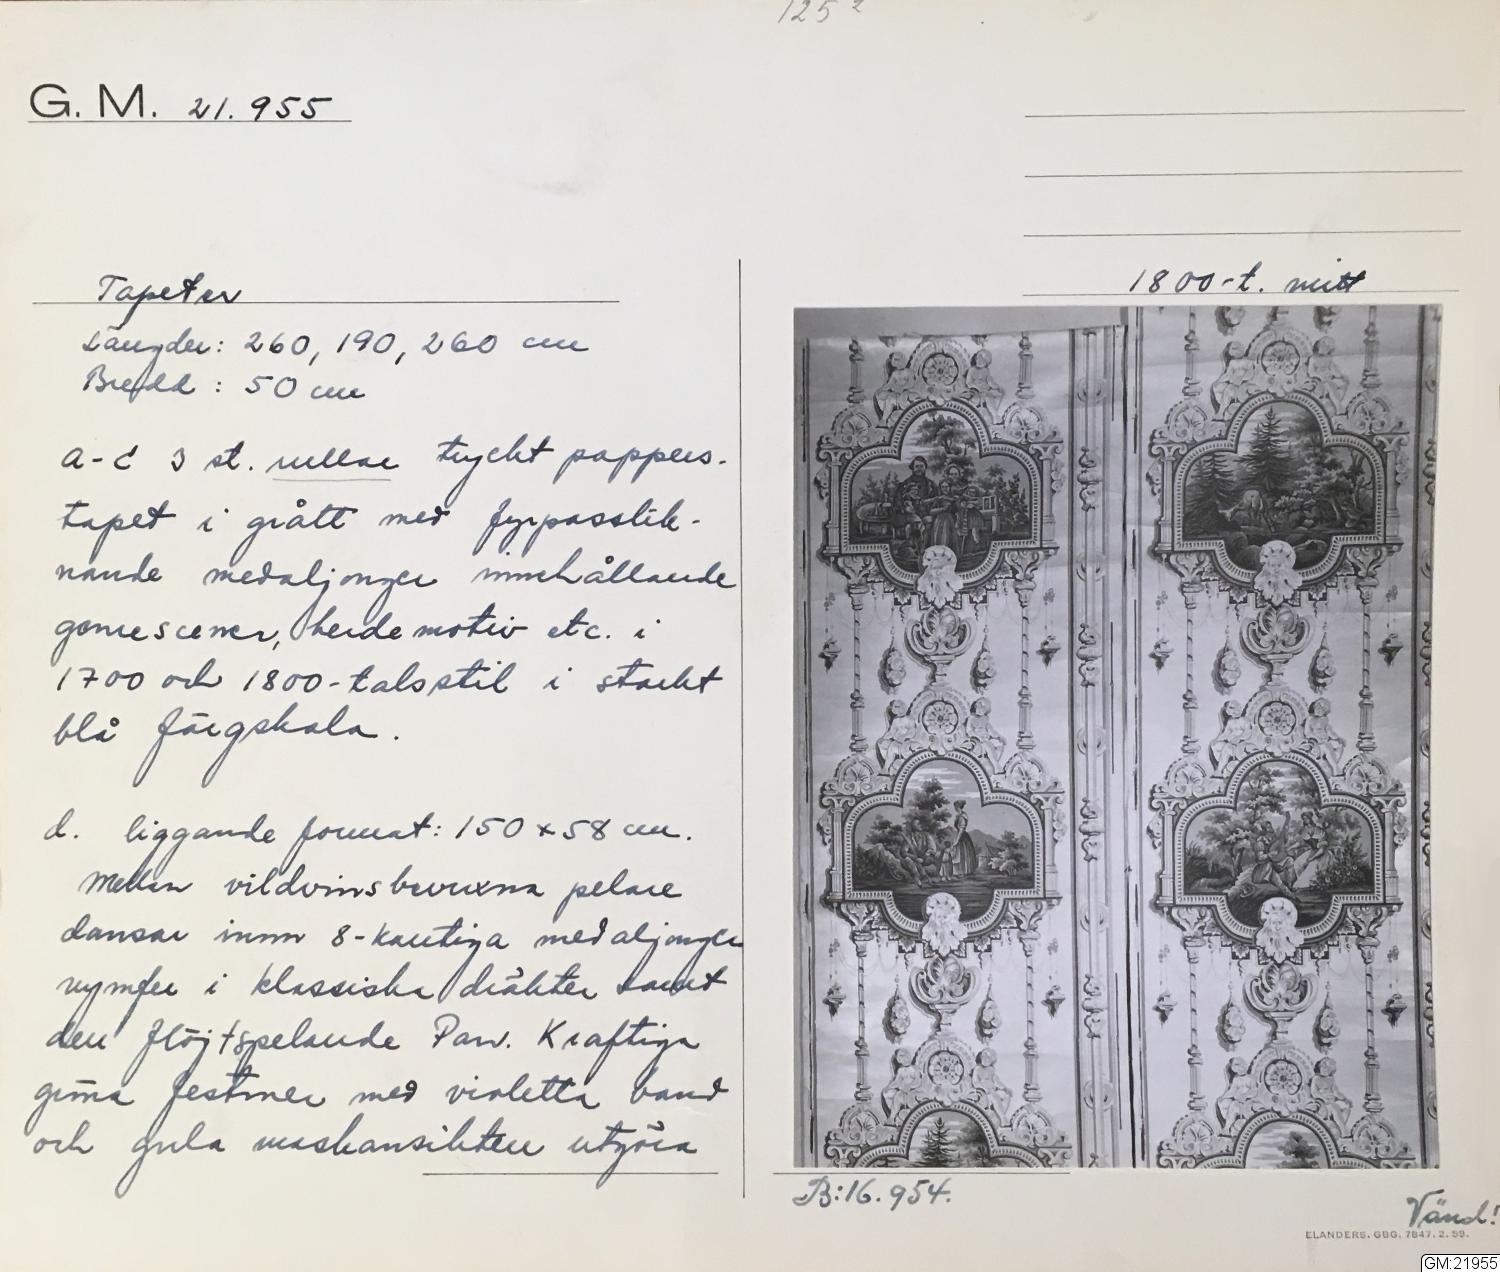 125 2
G. M. 21.955
1800-t. mitt
Tapeter
Längder: 260, 190, 260 cm
Bredd : 50 cm
a-c 3 st. rullar tryckt pappers-
tapet i grått med fyrpasslik-
nande medaljonger innehållande
genrescener, herdemotiv etc. i
1700 och 1800-talsstil i starkt
blå färgskala.
d. liggande format: 150 x 58 cm.
Mellan vildvinsbevuxna pelare
dansar inom 8-kantiga medaljonger
nymfer i klassiska dräkter samt
den flöjtspelande Pan. Kraftiga
gröna festoner med violetta band
och gula maskansikten utgöra
B:16.954.
Vänd!
ELANDERS. GBG. 7847. 2. 59.
GM:21955